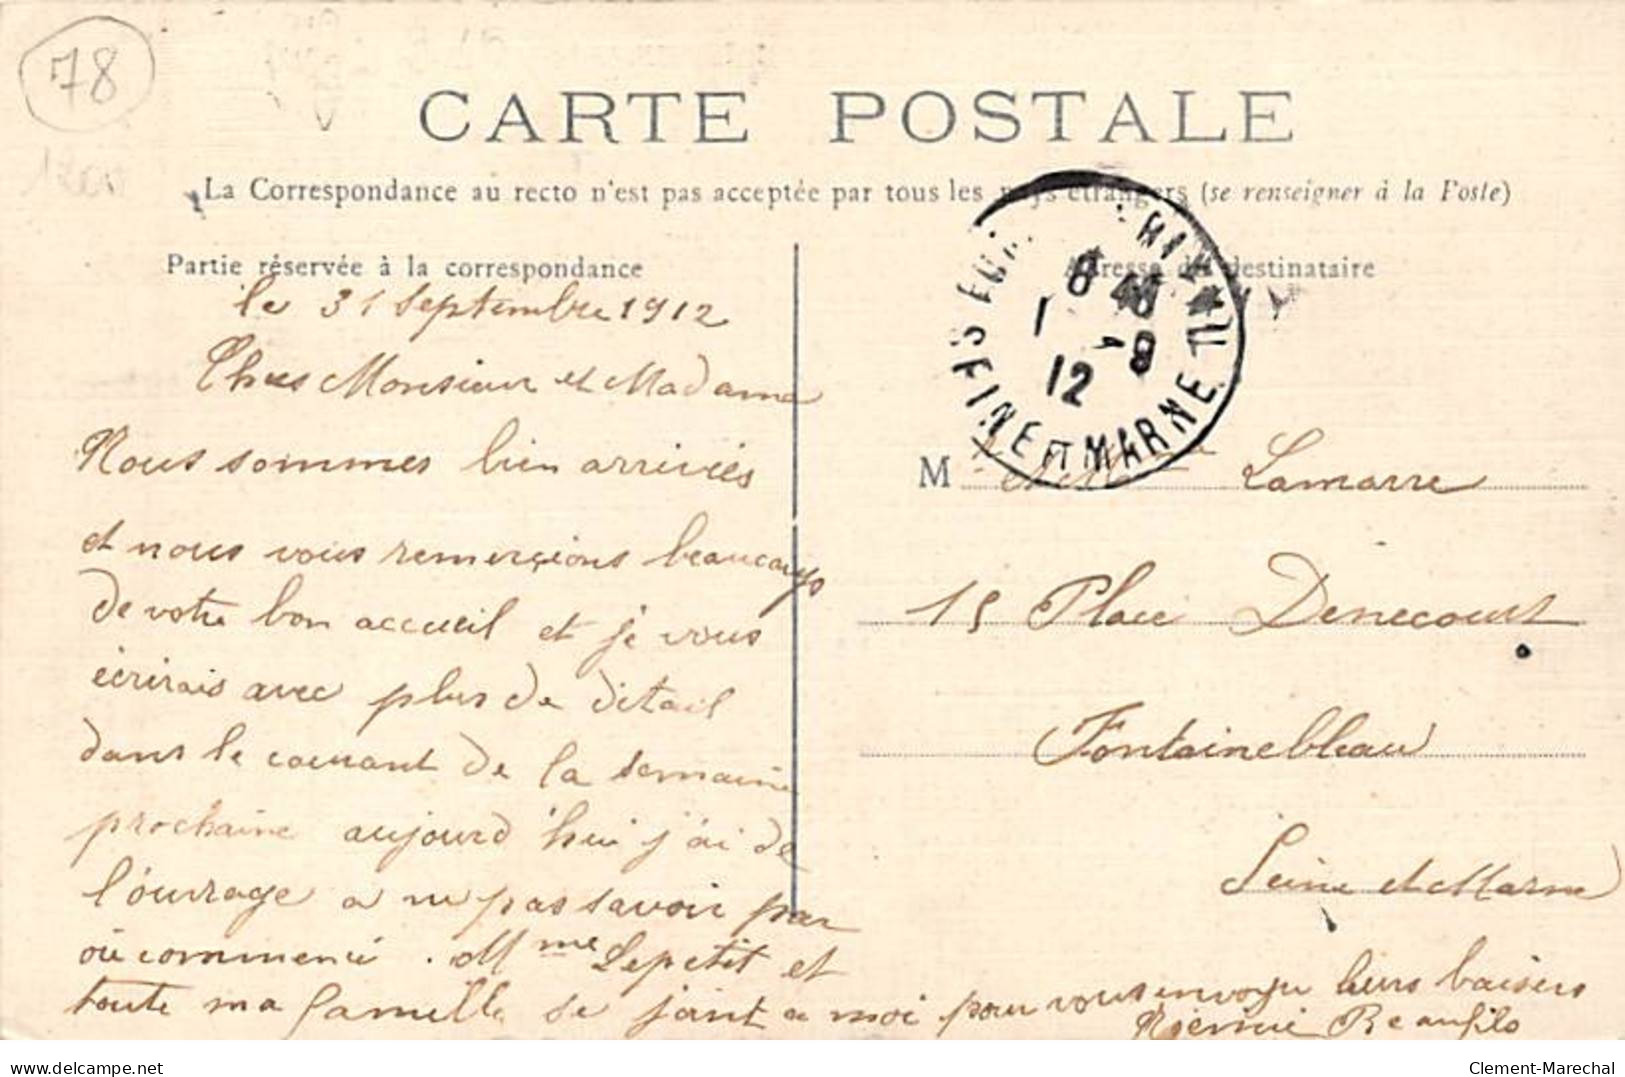 78
CARTE POSTALE
La Correspondance au recto n'est pas acceptée par tous les pays étrangers (se renseigner à la Poste)
Partie réservée à la correspondance
le 31 Septembre 1912
Chers Monsieur et Madame
Nous sommes bien arrivées
et nous vous remerçions beaucoup
de votre bon accueil et je vous
écrirais avec plus de détail
dans le courant de la semaine
prochaine aujourd'hui j'ai de
l'ouvrage a ne pas savoir par
où commencé. Mme Lepetit et
toute ma famille se joint a moi pour vous envoyer leurs baisers
Beaufils
Adresse du destinataire
M et Lamarre
15 Place Denecourt
Fontainebleau
Seine et Marne
8 40
1 -9
12
SEINE ET MARNE
delcampe.net
Clement-Marechal